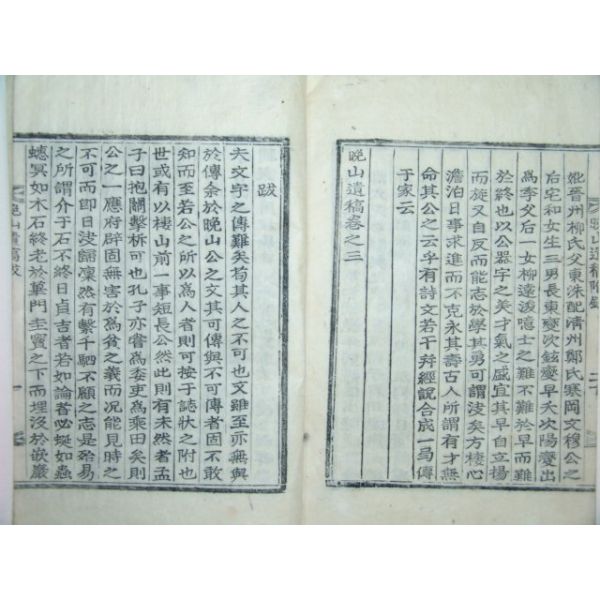 晚山遺稿附錄
妣晉州柳氏父東洙配淸州鄭氏寒岡文穆公之
后宅和女生三男長東夔次鉉夔早夭次陽夔出
爲季父后一女柳遠浚噫士之難不難於早而難
於終也以公器宇之美才氣之盛宜其早自立揚
而旋又自反而能志於學其勇可謂浚矣方棲心
澹泊日事求進而不克永其壽古人所謂有才無
命其公之云乎有詩文若干幷經說合成一局傳
于家云
晚山遺稿卷之三
跋
夫文字之傳難矣苟其人之不可也文雖至亦無與
於傳余於晚山公之文其可傳與不可傳者固不敢
知而至若公之所以爲人者則可按於誌狀之附也
世或有以棲山前一事短長公然此則有未然者孟
子曰抱關擊柝可也孔子亦嘗爲委吏爲乘田矣則
公之一應府辟固無害於爲貧之義而況能見時之
不可而卽日浚歸凜然有繫千駟不顧之志是殆易
之所謂介于石不終日貞吉者若如論者必蜒如蟲
蟋冥如木石終老於蓽門圭竇之下而埋沒於嵌巖
晚山遺稿跋
一